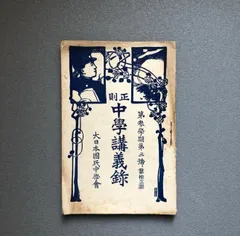 正則
中學講義錄
第叁學期第三號
大日本國民中學會